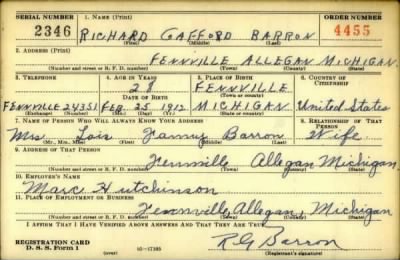 SERIAL NUMBER 1. NAME (Print) ORDER NUMBER
2346 RICHARD GAFFORD BARRON 4455
(First) (Middle) (Last)
2. ADDRESS (Print)
FENNVILLE ALLEGAN MICHIGAN.
(Number and street or R. F. D. number) (Town) (County) (State)
3. TELEPHONE 4. AGE IN YEARS 5. PLACE OF BIRTH 6. COUNTRY OF CITIZENSHIP
28 FENNVILLE
DATE OF BIRTH (Town or county)
FENNVILLE 24351 FEB. 25 1912 MICHIGAN United States
(Exchange) (Number) (Mo.) (Day) (Yr.) (State or country)
7. NAME OF PERSON WHO WILL ALWAYS KNOW YOUR ADDRESS 8. RELATIONSHIP OF THAT PERSON
Mrs Lois Barron Wife
(Mr., Mrs., Miss) (First) (Middle) (Last)
9. ADDRESS OF THAT PERSON
Fennville Allegan Michigan.
(Number and street or R. F. D. number) (Town) (County) (State)
10. EMPLOYER'S NAME
Marc Hutchinson
11. PLACE OF EMPLOYMENT OR BUSINESS
Fennville, Allegan, Michigan
(Number and street or R. F. D. number) (Town) (County) (State)
I AFFIRM THAT I HAVE VERIFIED ABOVE ANSWERS AND THAT THEY ARE TRUE.
REGISTRATION CARD RG Barron
D. S. S. Form 1 16—17105 (Registrant's signature)